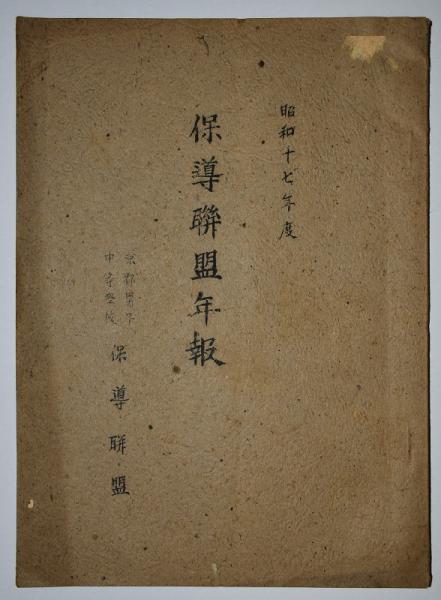 昭和十七年度
保導聯盟年報
京都男子
中等学校
保導聯盟